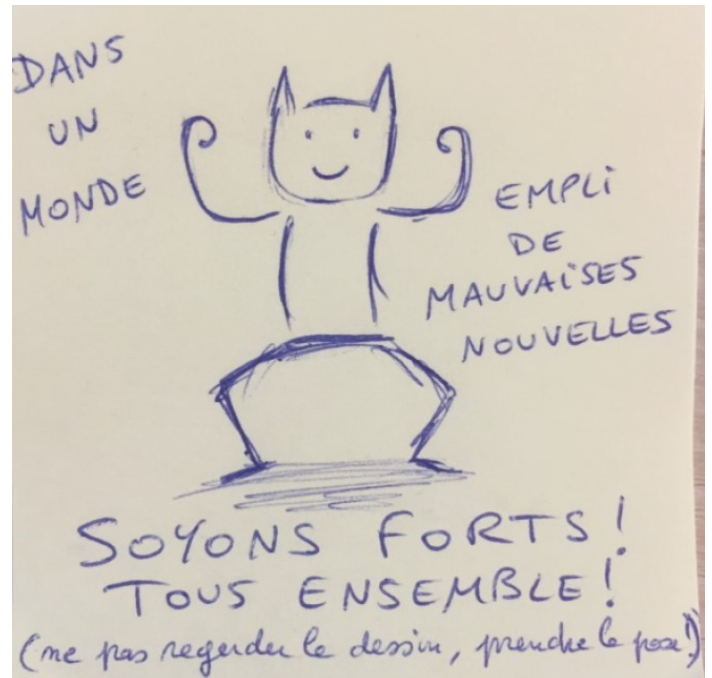 DANS
UN
MONDE
EMPLI
DE
MAUVAISES
NOUVELLES
SOYONS FORTS !
TOUS ENSEMBLE !
(ne pas regarder le dessin, prendre la pose !)